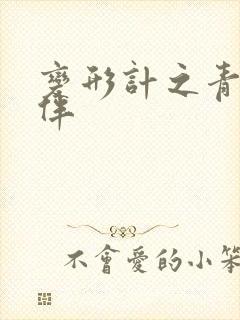 變形計之青
不會愛的小笨